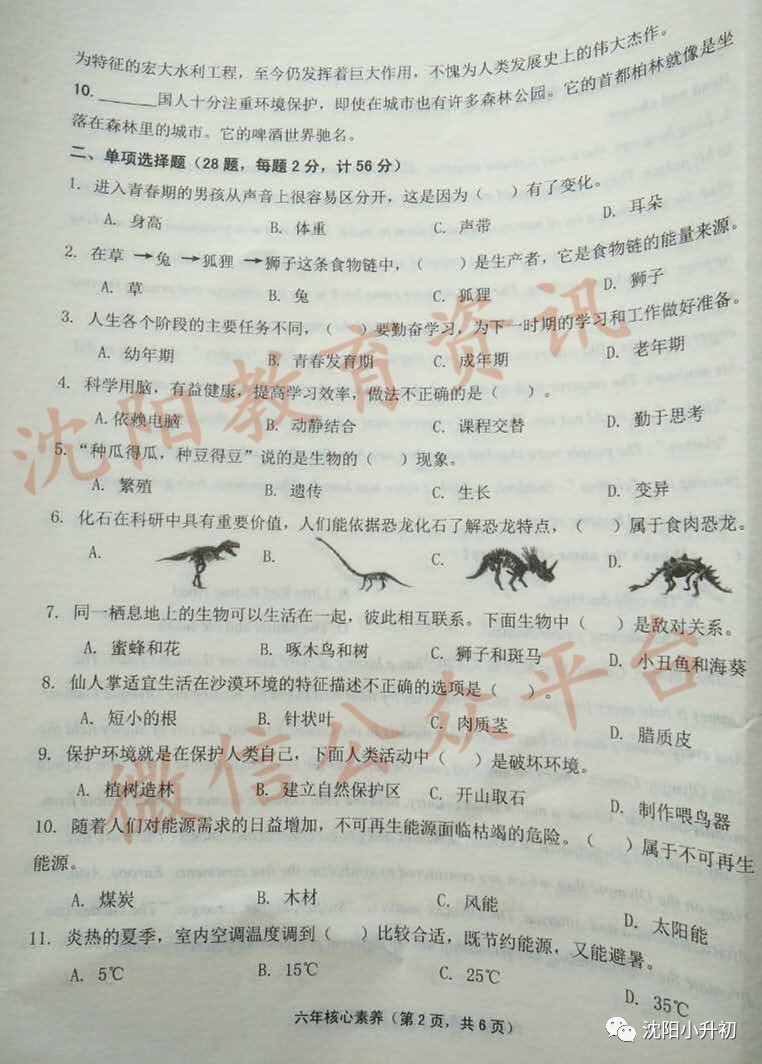 为特征的宏大水利工程，至今仍发挥着巨大作用，不愧为人类发展史上的伟大杰作。
10.______国人十分注重环境保护，即使在城市也有许多森林公园。它的首都柏林就像是坐
落在森林里的城市。它的啤酒世界驰名。
二、单项选择题（28题，每题2分，计56分）
1. 进入青春期的男孩从声音上很容易区分开，这是因为（ ）有了变化。
A. 身高 B. 体重 C. 声带 D. 耳朵
2. 在草→兔→狐狸→狮子这条食物链中，（ ）是生产者，它是食物链的能量来源。
A. 草 B. 兔 C. 狐狸 D. 狮子
3. 人生各个阶段的主要任务不同，（ ）要勤奋学习，为下一时期的学习和工作做好准备。
A. 幼年期 B. 青春发育期 C. 成年期 D. 老年期
4. 科学用脑，有益健康，提高学习效率，做法不正确的是（ ）。
A.依赖电脑 B. 动静结合 C. 课程交替 D. 勤于思考
5.“种瓜得瓜，种豆得豆”说的是生物的（ ）现象。
A. 繁殖 B. 遗传 C. 生长 D. 变异
6. 化石在科研中具有重要价值，人们能依据恐龙化石了解恐龙特点，（ ）属于食肉恐龙。
A. B. C. D.
7. 同一栖息地上的生物可以生活在一起，彼此相互联系。下面生物中（ ）是敌对关系。
A. 蜜蜂和花 B. 啄木鸟和树 C. 狮子和斑马 D. 小丑鱼和海葵
8. 仙人掌适宜生活在沙漠环境的特征描述不正确的选项是（ ）。
A. 短小的根 B. 针状叶 C. 肉质茎 D. 腊质皮
9. 保护环境就是在保护人类自己，下面人类活动中（ ）是破坏环境。
A. 植树造林 B. 建立自然保护区 C. 开山取石 D. 制作喂鸟器
10. 随着人们对能源需求的日益增加，不可再生能源面临枯竭的危险。（ ）属于不可再生
能源。
A. 煤炭 B. 木材 C. 风能 D. 太阳能
11. 炎热的夏季，室内空调温度调到（ ）比较合适，既节约能源，又能避暑。
A. 5℃ B. 15℃ C. 25℃ D. 35℃
六年核心素养（第2页，共6页）
沈阳教育资讯
微信公众平台
沈阳小升初